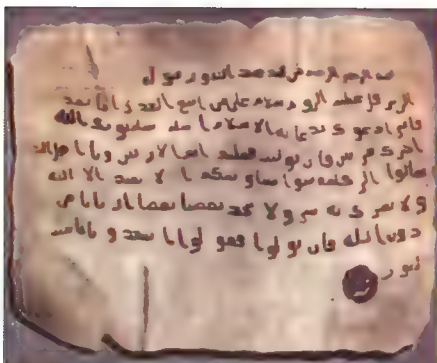 بسم الله الرحمن الرحيم من محمد عبد الله ورسول
الى هرقل عظيم الروم سلام على من اتبع الهدى اما بعد
فانى ادعوك بدعاية الاسلام اسلم تسلم يوتك الله
اجرك مرتين فان توليت فعليك اثم الاريسيين ويا اهل
تعالوا الى كلمة سوا بيننا وبينكم الا نعبد الا الله
ولا نشرك به شيا ولا يتخذ بعضنا بعضا اربابا من
دون الله فان تولوا فقولوا اشهدوا بانا